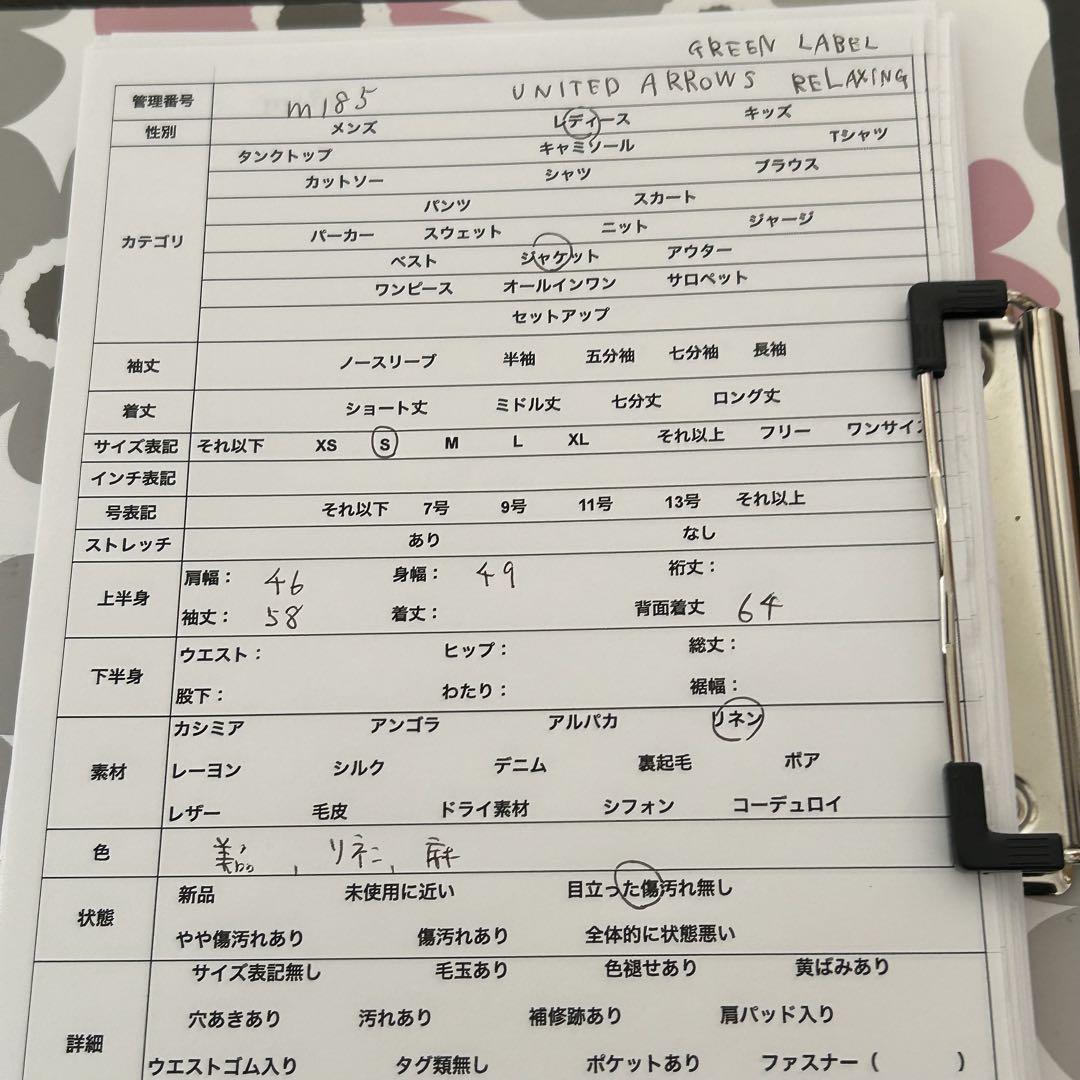 GREEN LABEL
管理番号 m185 UNITED ARROWS RELAXING
性別 メンズ レディース キッズ
カテゴリ タンクトップ キャミソール Tシャツ
カットソー シャツ ブラウス
パンツ スカート
パーカー スウェット ニット ジャージ
ベスト ジャケット アウター
ワンピース オールインワン サロペット
セットアップ
袖丈 ノースリーブ 半袖 五分袖 七分袖 長袖
着丈 ショート丈 ミドル丈 七分丈 ロング丈
サイズ表記 それ以下 XS S M L XL それ以上 フリー ワンサイズ
インチ表記
号表記 それ以下 7号 9号 11号 13号 それ以上
ストレッチ あり なし
上半身 肩幅: 46 身幅: 49 裄丈:
袖丈: 58 着丈: 背面着丈 64
下半身 ウエスト: ヒップ: 総丈:
股下: わたり: 裾幅:
素材 カシミア アンゴラ アルパカ リネン
レーヨン シルク デニム 裏起毛 ボア
レザー 毛皮 ドライ素材 シフォン コーデュロイ
色 美品, リネン, 麻
状態 新品 未使用に近い 目立った傷汚れ無し
やや傷汚れあり 傷汚れあり 全体的に状態悪い
詳細 サイズ表記無し 毛玉あり 色褪せあり 黄ばみあり
穴あきあり 汚れあり 補修跡あり 肩パッド入り
ウエストゴム入り タグ類無し ポケットあり ファスナー( )